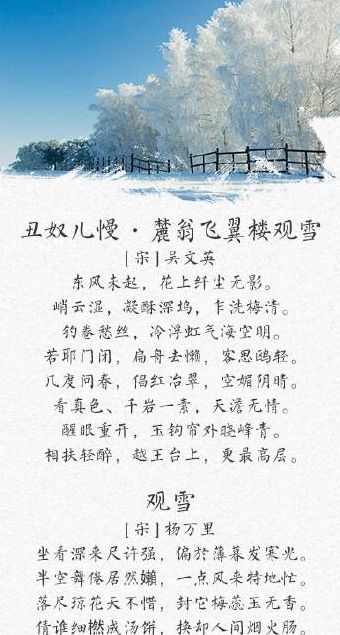 丑奴儿慢·麓翁飞翼楼观雪
[宋]吴文英
东风未起，花上纤尘无影。
峭云湿，凝酥深坞，乍洗梅清。
钓卷愁丝，冷浮虹气海空明。
若耶门闭，扁舟去懒，客思鸥轻。
几度问春，倡红冶翠，空媚阴晴。
看真色、千岩一素，天澹无情。
醒眼重开，玉钩帘外晓峰青。
相扶轻醉，越王台上，更最高层。
观雪
[宋]杨万里
坐看深来尺许强，偏於薄暮发寒光。
半空舞倦居然嬾，一点风来特地忙。
落尽琼花天不惜，封它梅蕊玉无香。
倩谁细橪成汤饼，换却人间烟火肠。